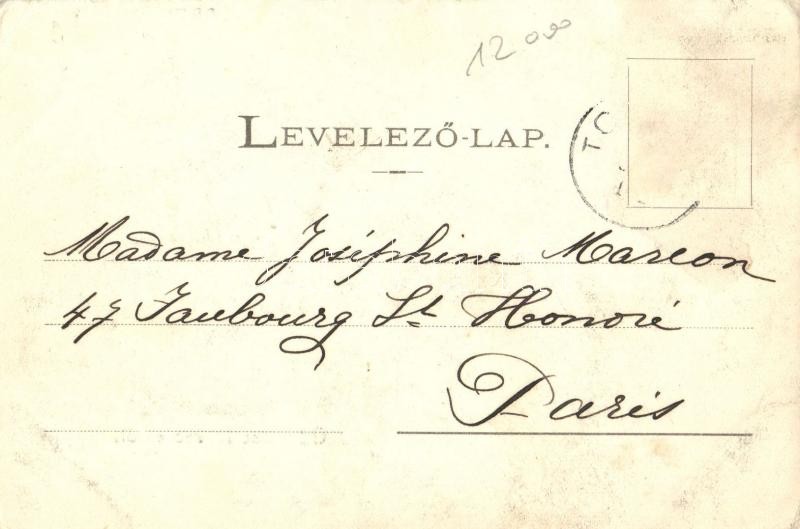 12000
LEVELEZŐ-LAP.
TO
Madame Joséphine Marcon
47 Faubourg St Honoré
Paris